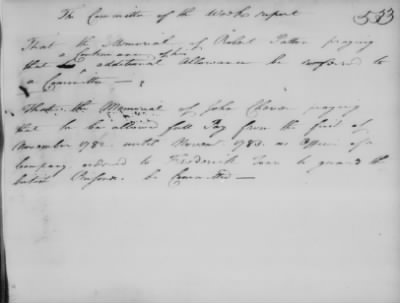 533
The Committee of the Week report
That the Memorial of Robert Patten praying
a continuance of his
that additional Allowance be referred to
a Committee —
That the Memorial of John Cleves praying
that he be allowed full Pay from the first of
November 1782 until Novem 1783 as Officer of a
Company ordered to Frederick Town to guard the
british Prisoners be Committed —